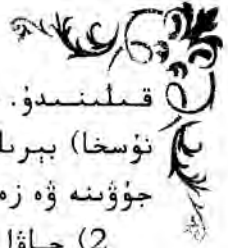 قىلىنىدۇ.
نۇسخا) بىرىل
جۇۋىنە ۋە زە
2) جاۋا